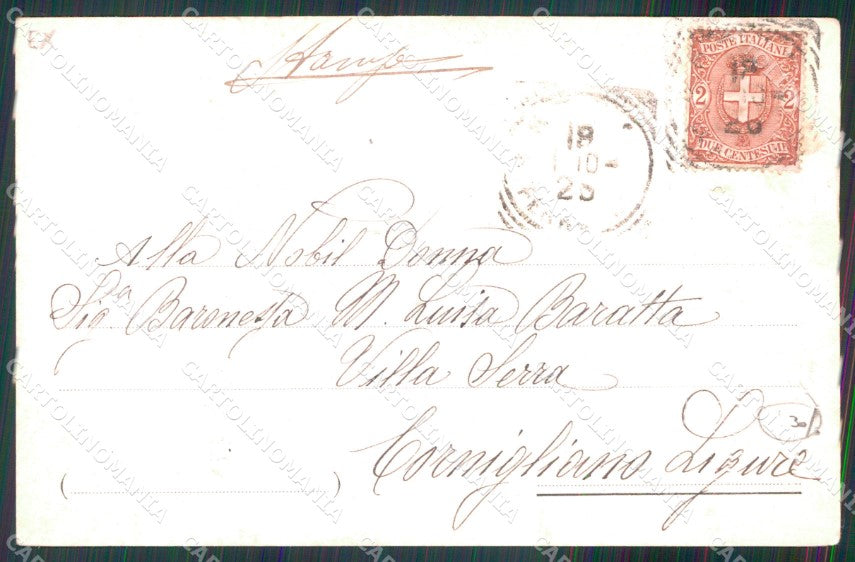 Stamp
POSTE ITALIANE
2 2
DUE CENTESIMI
18
10
23
Alla Nobil Donna
Sig.ra Baronessa M. Luisa Baratta
Villa Serra
Cornigliano Ligure
( )
CARTOLINOMANIA